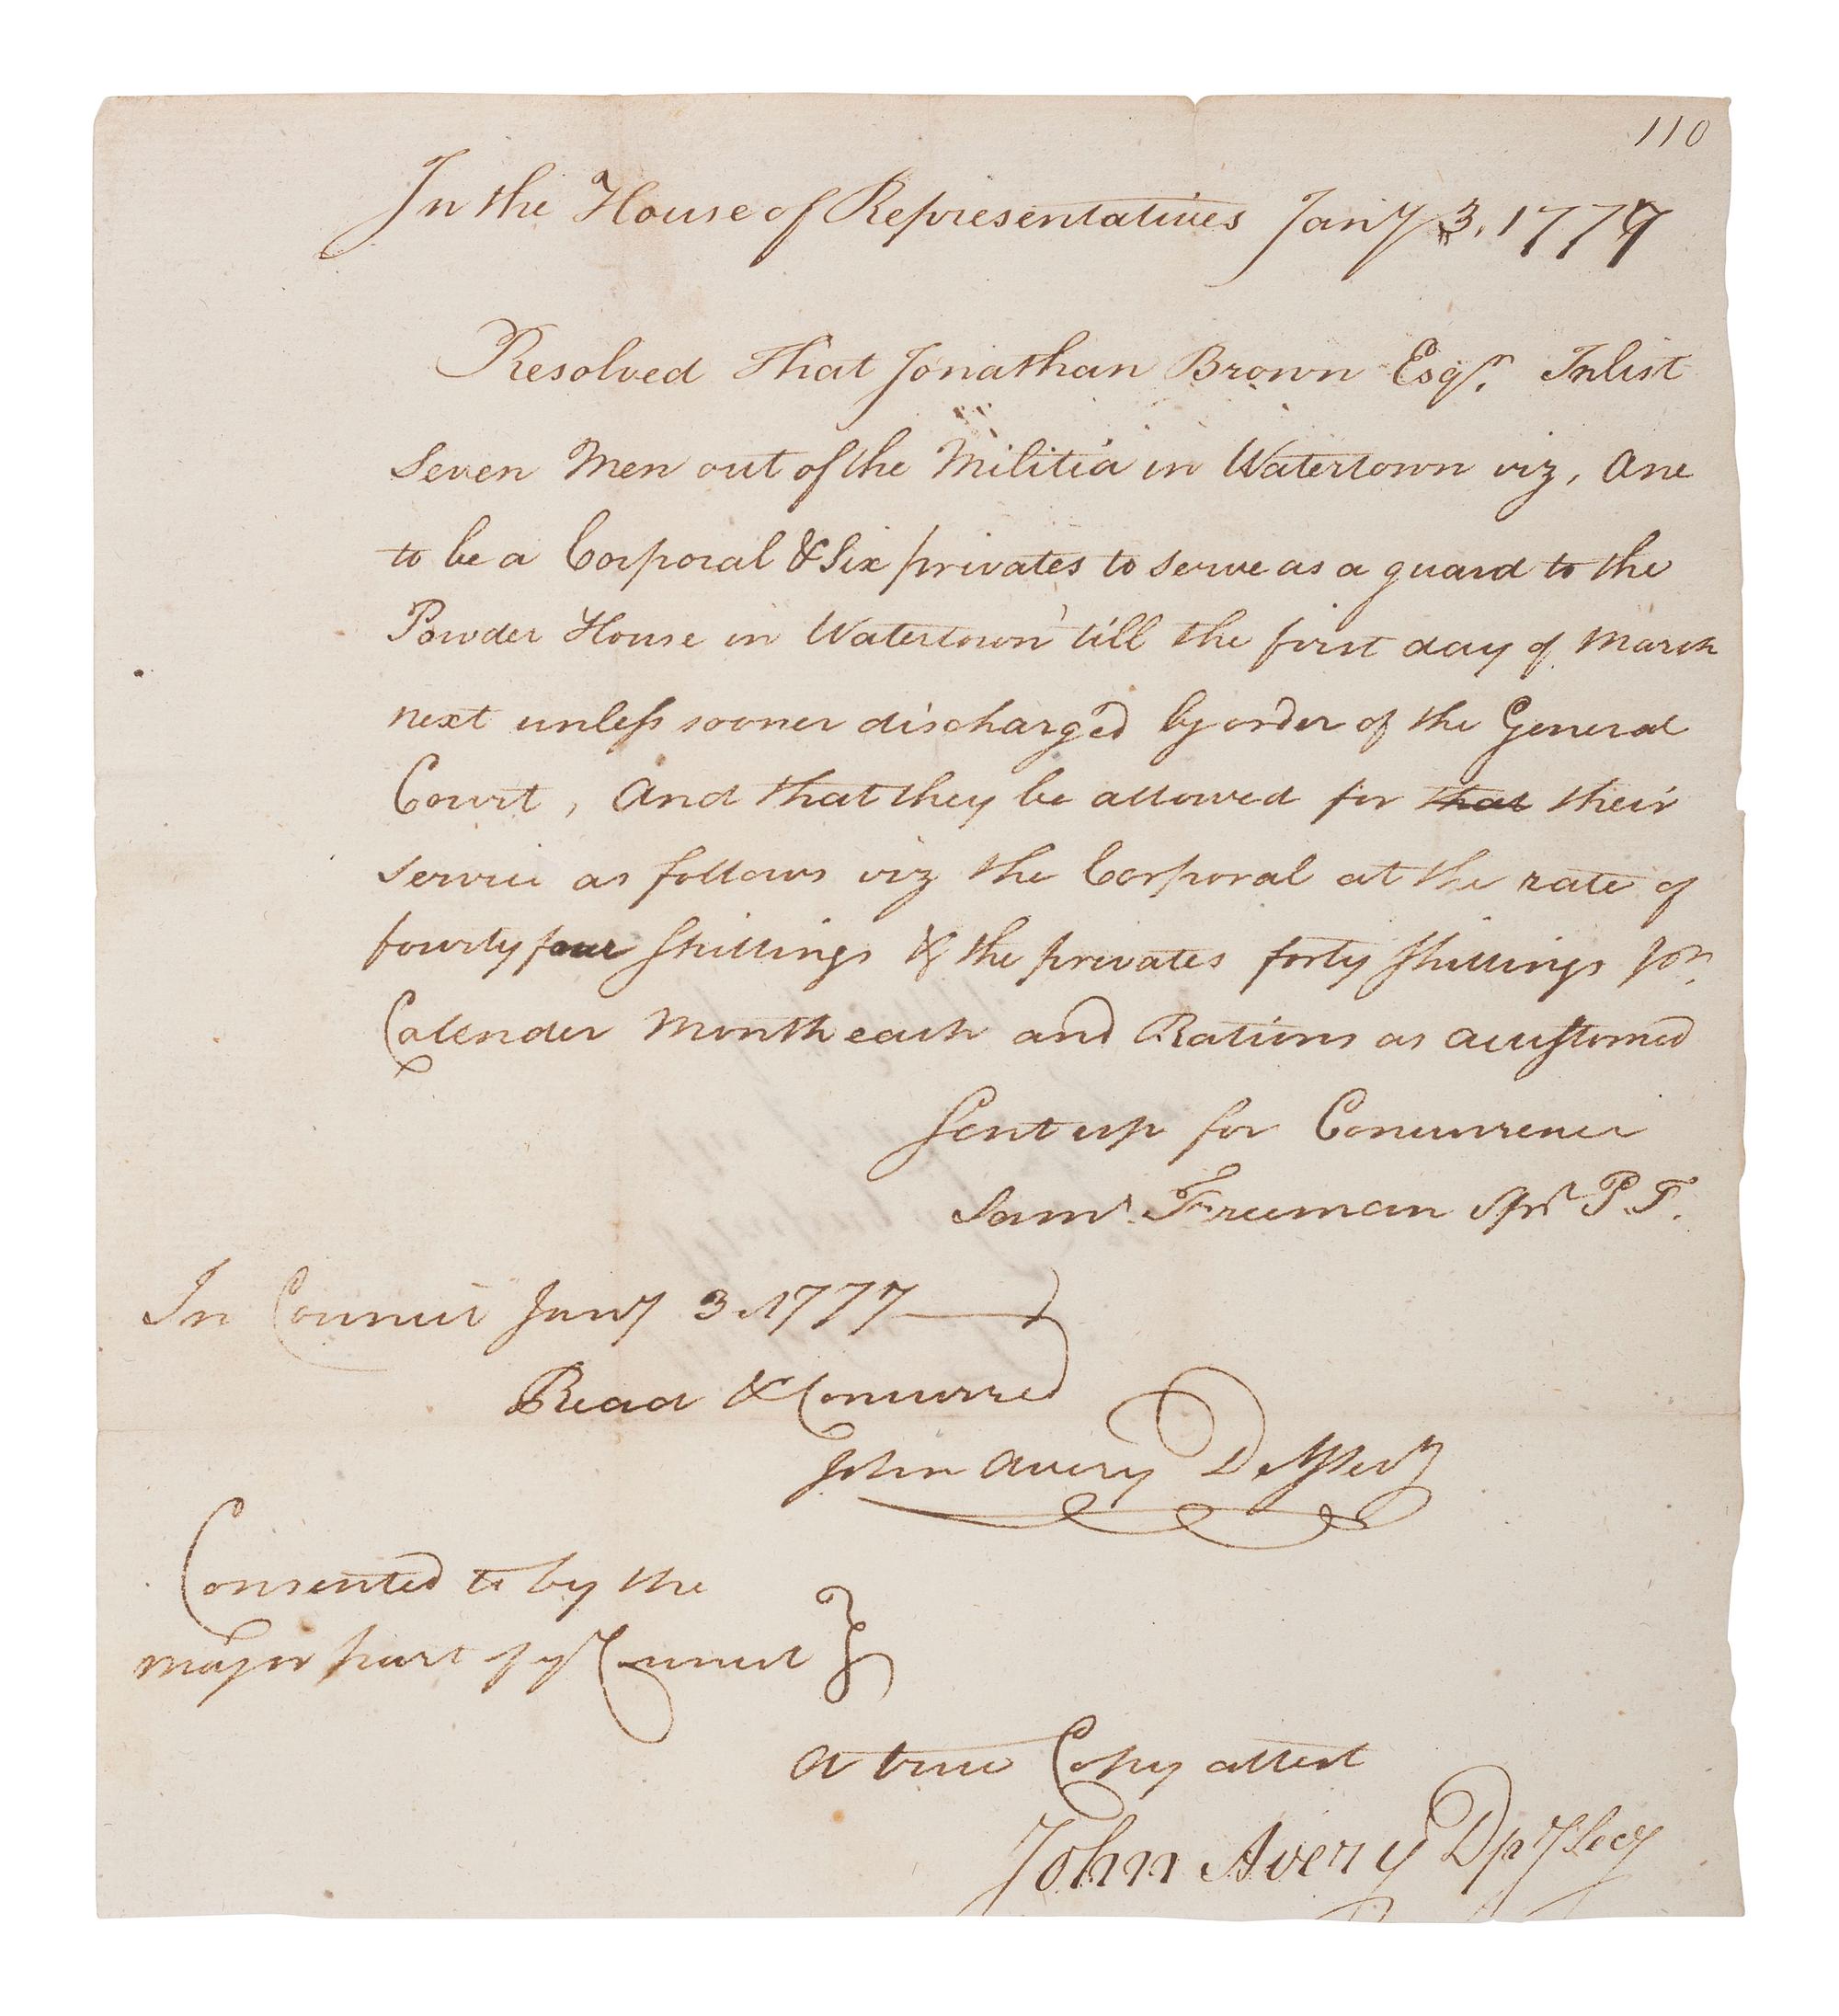 110
In the House of Representatives Jany 3. 1777
Resolved that Jonathan Brown Esqr. Inlist
seven Men out of the Militia in Watertown viz, One
to be a Corporal & Six privates to serve as a guard to the
Powder House in Watertown till the first day of March
next unless sooner discharg'd by order of the General
Court, And that they be allowed for that their
service as follows viz the Corporal at the rate of
fourty four shillings & the privates forty shillings pr.
Calender Month each and Rations as accustomed
Sent up for Concurrence
Saml. Freeman Spkr P. T.
In Council Jany 3. 1777
Read & Concurred
John Avery Dpy Secy
Consented to by the
major part of ye Council
A true Copy attest
John Avery Dpy Secy